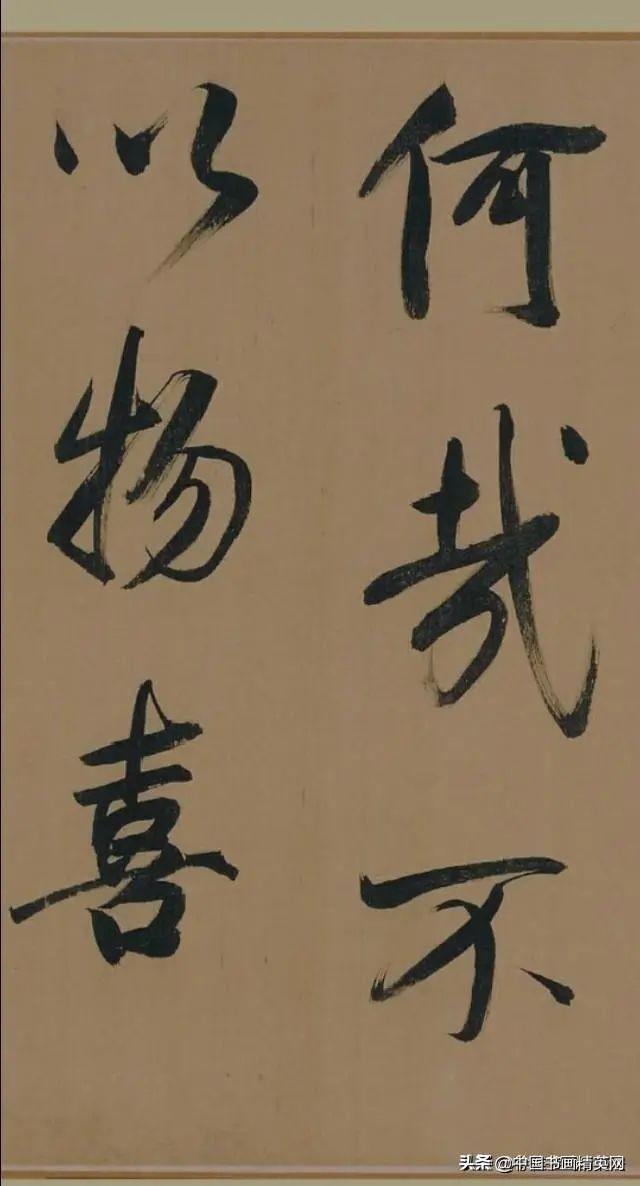 何哉不
以物喜
头条 @中国书画精英网